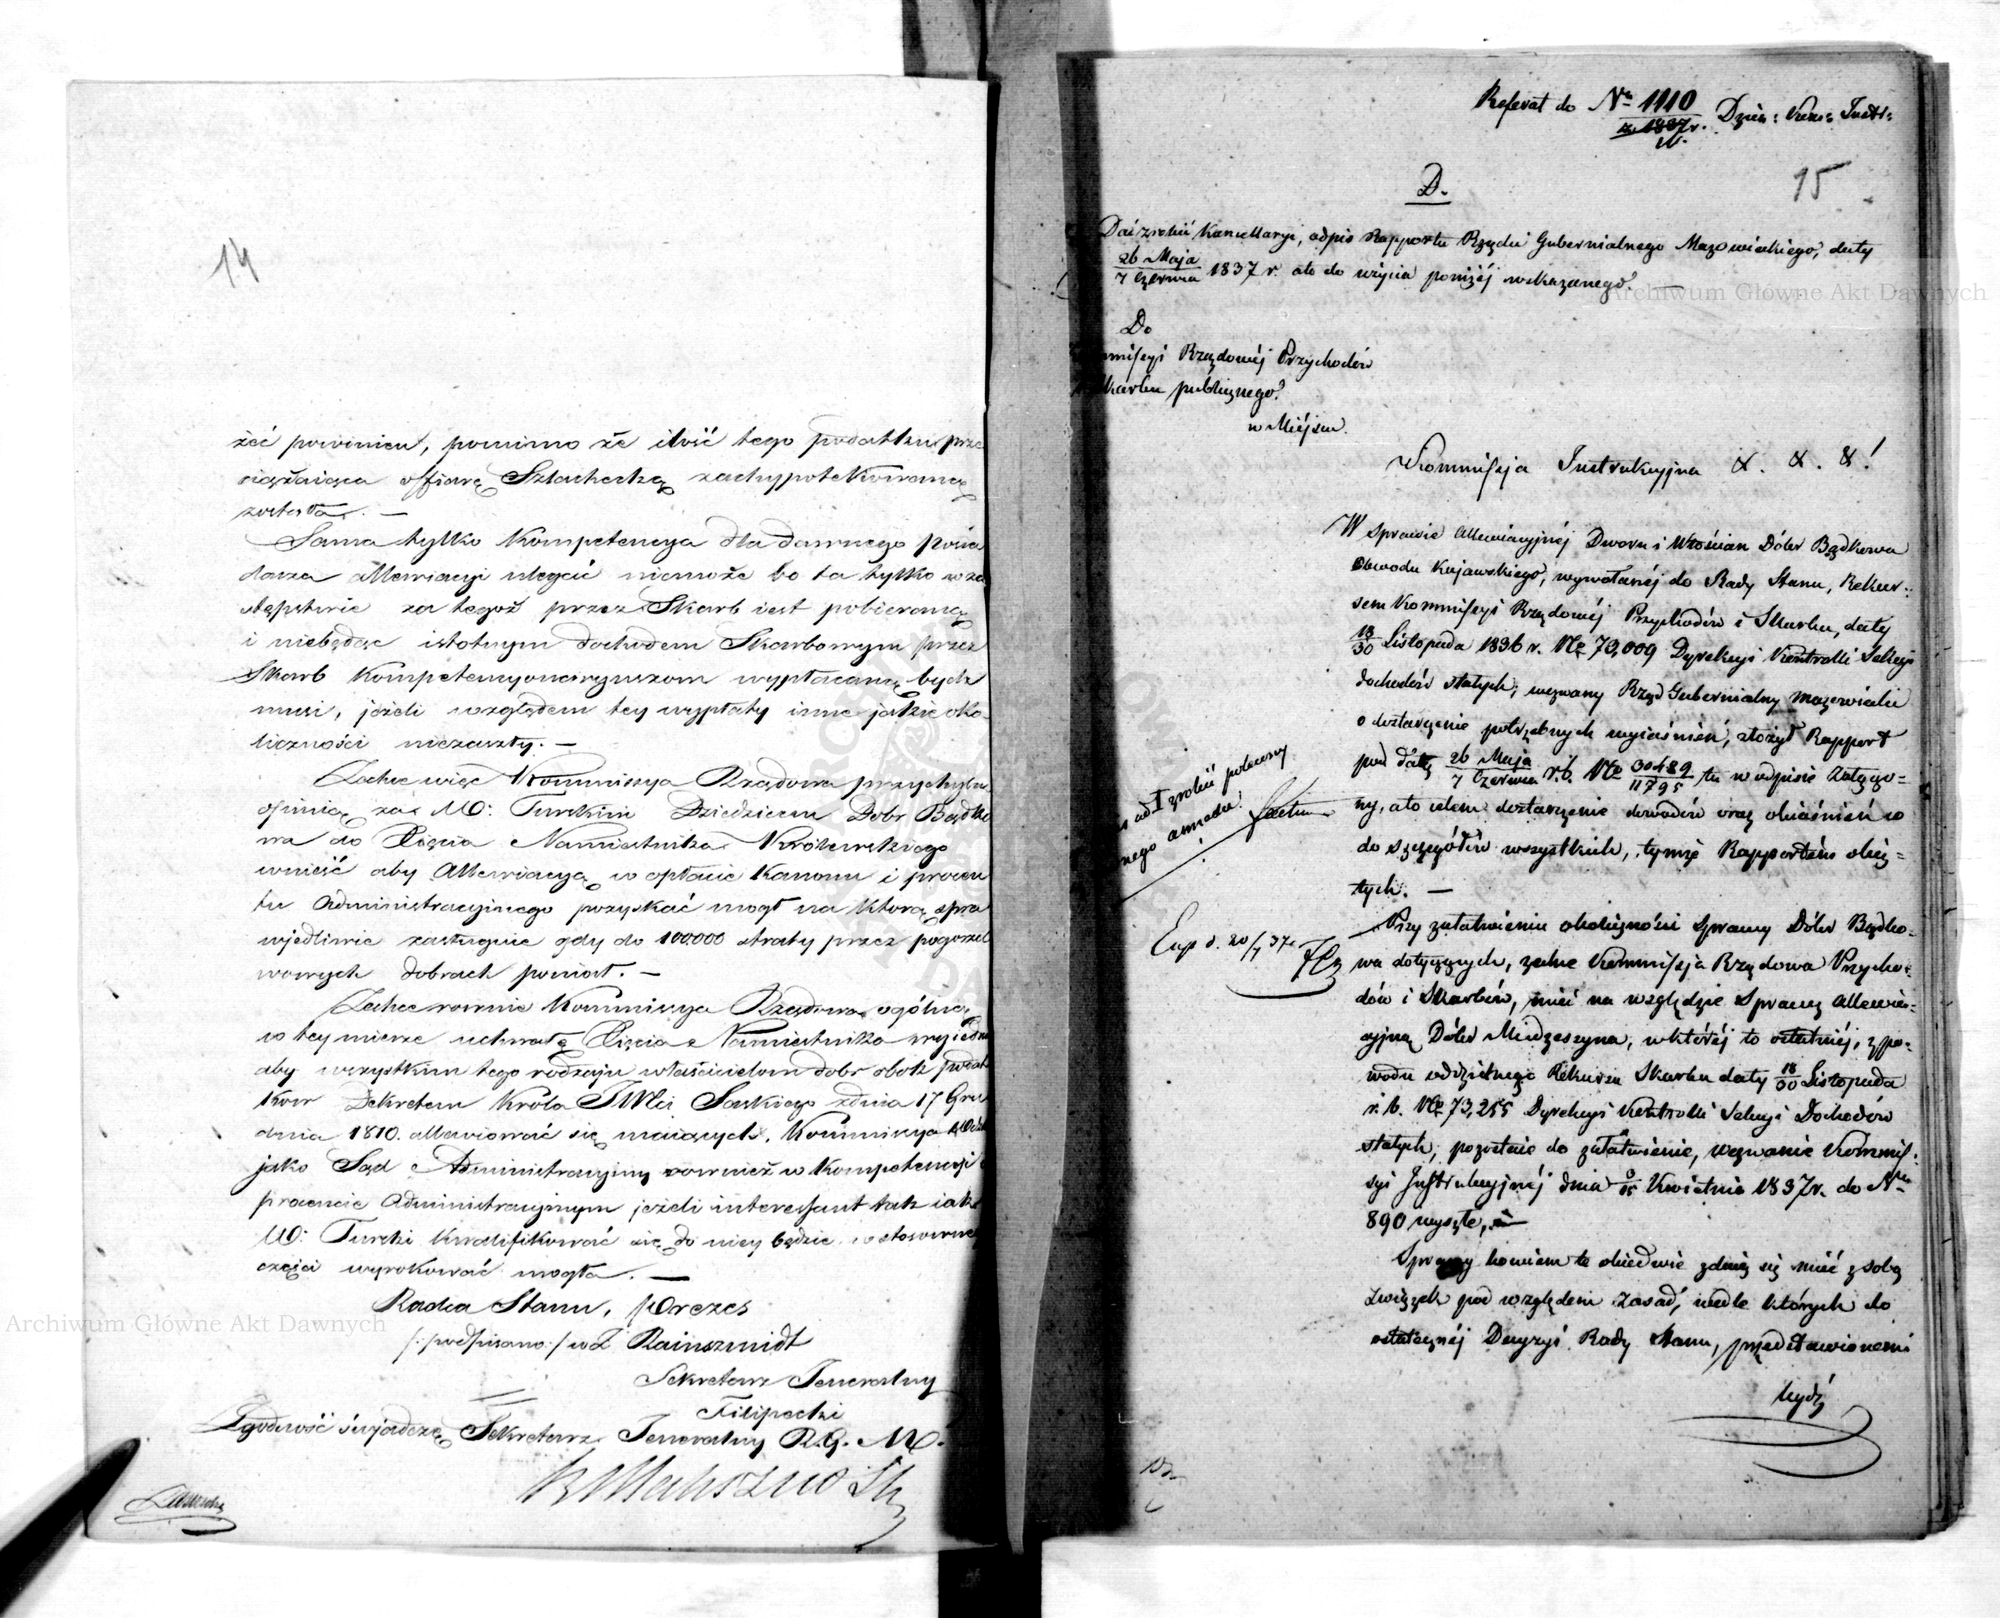 14
żeć powinien, pomimo że ilość tego podatku prze
siąszaiąca offiarę Szlachecką zachypotekowaną
została. —
Sama tylko Kompetencya dla dawnego posia
dacza allewiacyi ulegać niemoże bo ta tylko w za
stępstwie za tegoż przez Skarb iest pobieraną
i niebędąc istotnym dochodem Skarbowym przez
Skarb Kompetencyonaryuszom wypłacaną bydź
musi, jeżeli względem tey wypłaty inne jakie oko-
liczności niezaszły. —
Zechce więc Kommissya Rządowa przychylną
opinią za W: Turskim Dziedzicem Dobr Bądko
wa do Xięcia Namiestnika Królewskiego
wnieść aby Allewiacyą w opłacie Kanonu i procen
tu Administracyinego pozyskać mogł na którą spra
wjedliwie zasługuie gdy do 100.000 straty przez pogorzel
w owych dobrach poniosł. —
Zechce rownie Kommissya Rządowa ogólną
w tey mierze uchwałę Xięcia Namiestnika wyiedna
aby wszystkim tego rodzaju właścicielom dobr obok podat
kow Dekretem Króla JMci Saskiego z dnia 17 Gru
dnia 1810. allewiować się maiących, Kommissya Woie
jako Sąd Administracyiny rownież w Kompetencyi
procencie Administracyinym jeżeli interessant tak iak
W: Turski kwalifikować się do niey będzie w stosowney
części wyrokować mogła. —
Radca Stanu, Prezes
/:podpisano:/ w Z. Rainszmidt
Sekretarz Jeneralny
Filipecki
Zgodność świadczę Sekretarz Jeneralny R. G. M.
Referat do Nr 1110 Dzien: Kom: Instr:
z. 1837 r.
15
D.
Dać zrobić Kancellaryi, odpis Rapportu Rządu Gubernialnego Mazowieckiego, daty
26 Maja
7 Czerwca 1837 r. a to do użycia poniżéj wskazanego. —
Do
mmissyi Rządowéj Przychodów
Skarbu publicznego.
w Miejscu.
Kommissja Instrukcyjna &. &. &!
W sprawie allewiacyjnéj Dworu i Włościan Dóbr Bądkowa
Obwodu Kujawskiego, wywołanéj do Rady Stanu, Rekur-
sem Kommissyi Rządowéj Przychodów i Skarbu, daty
18/30 Listopada 1836 r. Nro 73,009 Dyrekcyi Kontrolli Sekcyi
dochodów stałych, wezwany Rząd Gubernialny Mazowiecki
o dostarczenie potrzebnych wyiaśnień, złożył Rapport
pod datą 26 Maja / 7 Czerwca r. b. Nro 30489 / 11795 tu w odpisie załączo-
ny, a to celem dostarczenie dowodów oraz obiaśnień co
do szczegółów wszystkich, tymże Rapportem obię-
tych. —
Przy załatwieniu okoliczności Sprawy Dóbr Bądko-
wa dotyczących, zechce Kommissja Rządowa Przycho-
dów i Skarbu, mieć na względzie Sprawę allewia-
cyjną Dóbr Miedzeszyna, w któréj to ostatniéj, z po-
wodu oddzielnego Rekursu Skarbu daty 18/30 Listopada
r. b. Nro 73,255 Dyrekcyi Kontrolli Sekcyi Dochodów
stałych, pozostaie do załatwienie, wezwanie Kommis-
syi Instrukcyjnéj dnia 3/15 Kwietnia 1837 r. do Nru
890 wyszłe,
Sprawy bowiem te obiedwie zdaią się mieć z sobą
związek pod względem zasad, wedle których do
ostatecznéj Decyzyi Rady Stanu, przedstawionemi
bydź
zrobić polecony
Exp d. 20/7 37
Archiwum Główne Akt Dawnych
Archiwum Główne Akt Dawnych